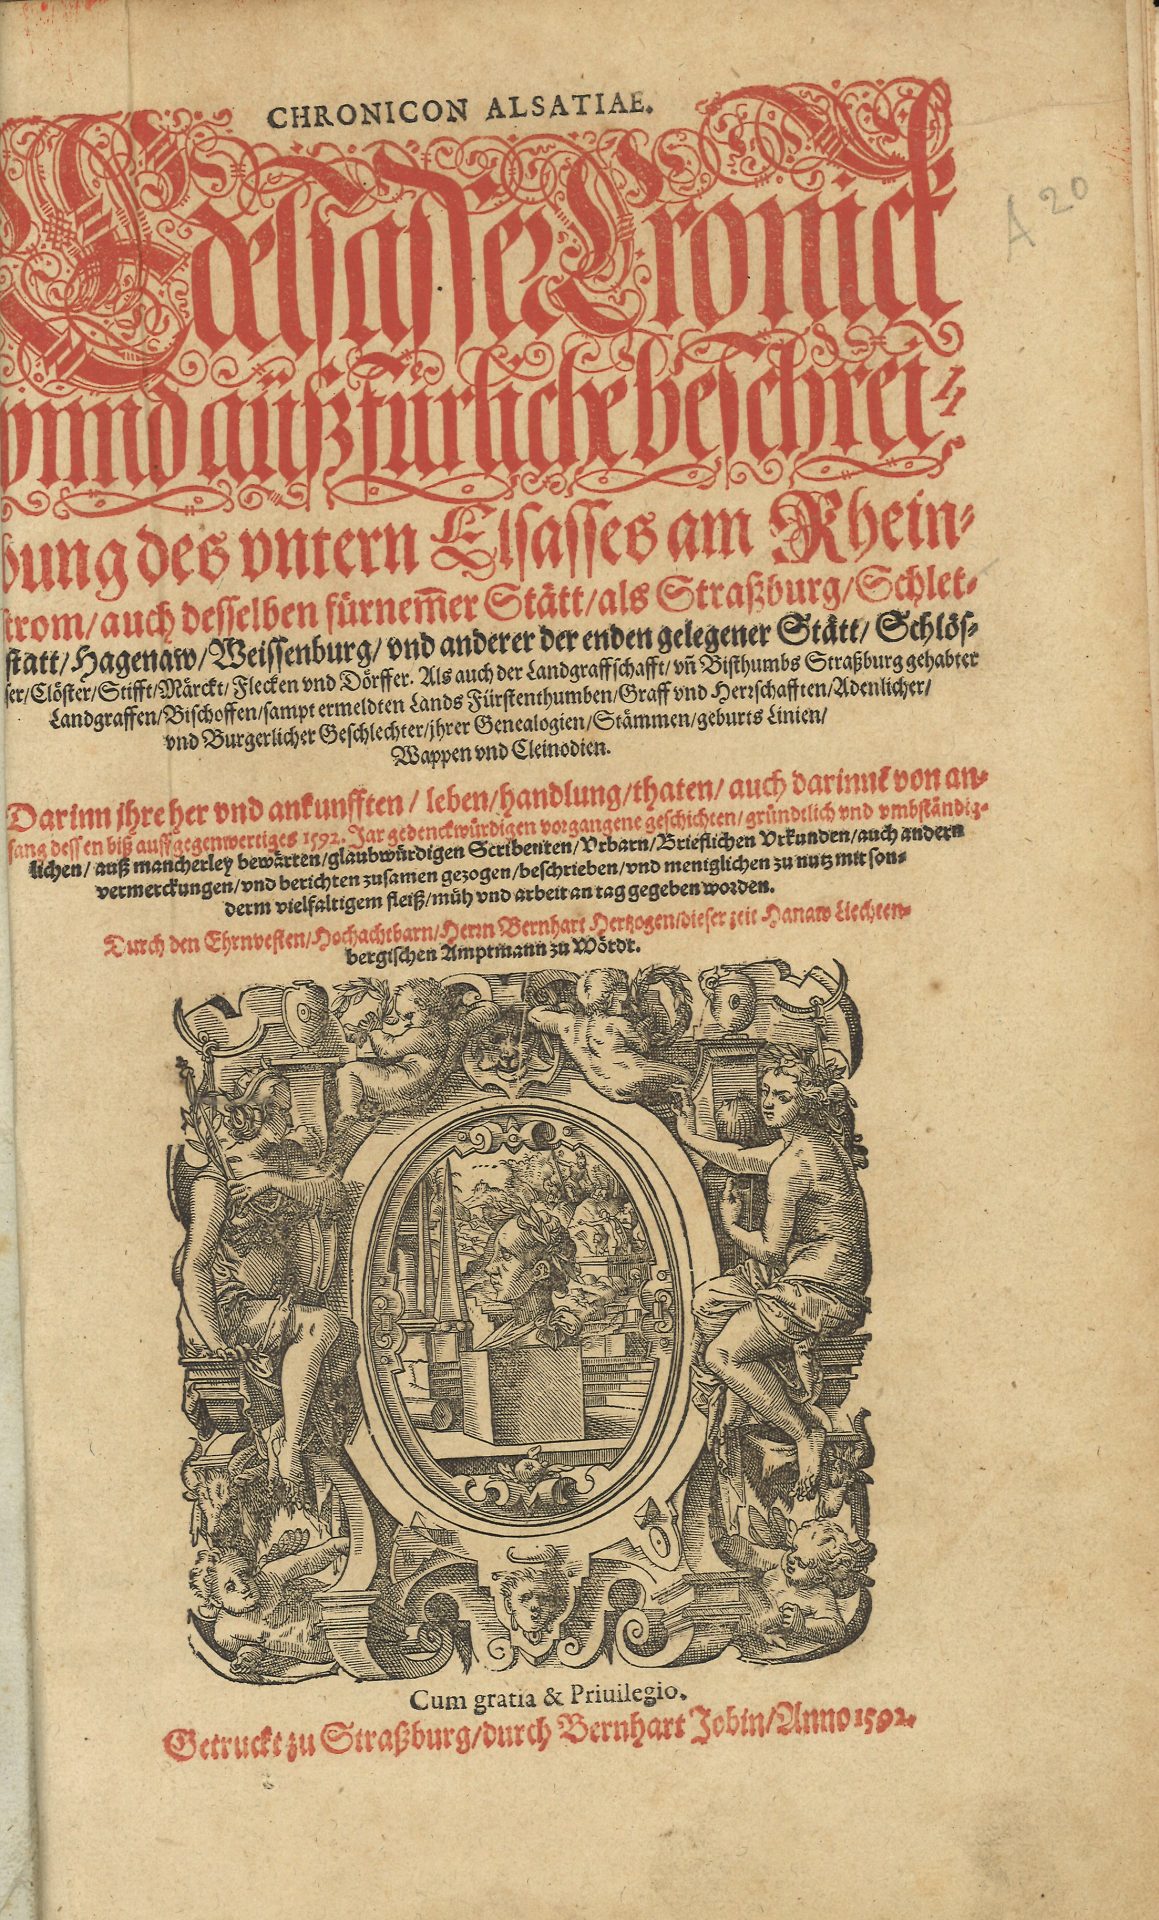 CHRONICON ALSATIAE.
A 20
Edelsasser Cronick
vnnd außfürliche beschrei-
bung des vntern Elsasses am Rhein-
strom/ auch desselben fürnem̃er Stätt/ als Straßburg/ Schlet-
statt/ Hagenaw/ Weissenburg/ vnd anderer der enden gelegener Stätt/ Schlös-
ser/ Clöster/ Stifft/ Märckt/ Flecken vnd Dörffer. Als auch der Landgraffschafft/ vñ Bisthumbs Straßburg gehabter
Landgraffen/ Bischoffen/ sampt ermeldten Lands Fürstenthumben/ Graff vnd Herrschafften/ Adenlicher/
vnd Burgerlicher Geschlechter/ jhrer Genealogien/ Stämmen/ geburts Linien/
Wappen vnd Cleinodien.
Darinn jhre her vnd ankunfften/ leben/ handlung/ thaten/ auch darinnẽ von an-
fang dessen biß auff gegenwertiges 1592. Jar gedenckwürdigen vorgangene geschichten/ gründtlich vnd vmbständig-
lichen/ auß mancherley bewärten/ glaubwürdigen Scribenten/ Vrbarn/ Brieflichen Vrkunden/ auch andern
vermerckungen/ vnd berichten zusamen gezogen/ beschrieben/ vnd meniglichen zu nutz mit son-
derm vielfaltigem fleiß/ müh vnd arbeit an tag gegeben worden.
Durch den Ehrnvesten/ Hochachtbarn/ Herrn Bernhart Hertzogen/ dieser zeit Hanaw Liechten-
bergischen Amptmann zu Wördt.
Cum gratia & Priuilegio.
Getruckt zu Straßburg/ durch Bernhart Jobin/ Anno 1592.